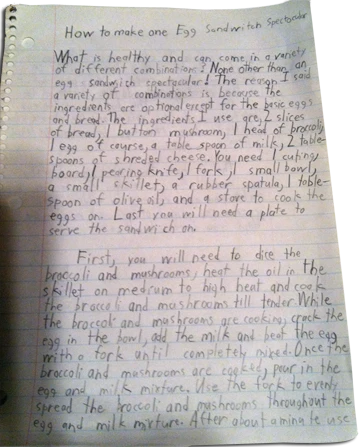 How to make one Egg Sandwitch Spectacular
What is healthy and can come in a variety
of different combinations? None other than an
egg sandwich spectacular! The reason I said
a variety of combinations is because the
ingredients are optional except for the basic eggs
and bread. The ingredients I use are, 2 slices
of bread, 1 button mushroom, 1 head of broccoli,
1 egg of course, a table spoon of milk, 2 table-
spoons of shreded cheese. You need 1 cuting
board, 1 pearing knife, 1 fork, 1 small bowl,
a small skillet, a rubber spatula, 1 table-
spoon of olive oil, and a stove to cook the
eggs on. Last you will need a plate to
serve the sandwich on.
First, you will need to dice the
broccoli and mushrooms, heat the oil in the
skillet on medium to high heat and cook
the broccoli and mushrooms till tender. While
the broccoli and mushrooms are cooking, crack the
egg in the bowl, add the milk and beat the egg
with a fork until completely mixed. Once the
broccoli and mushrooms are cooked, pour in the
egg and milk mixture. Use the fork to evenly
spread the broccoli and mushrooms throughout the
egg and milk mixture. After about a minute use